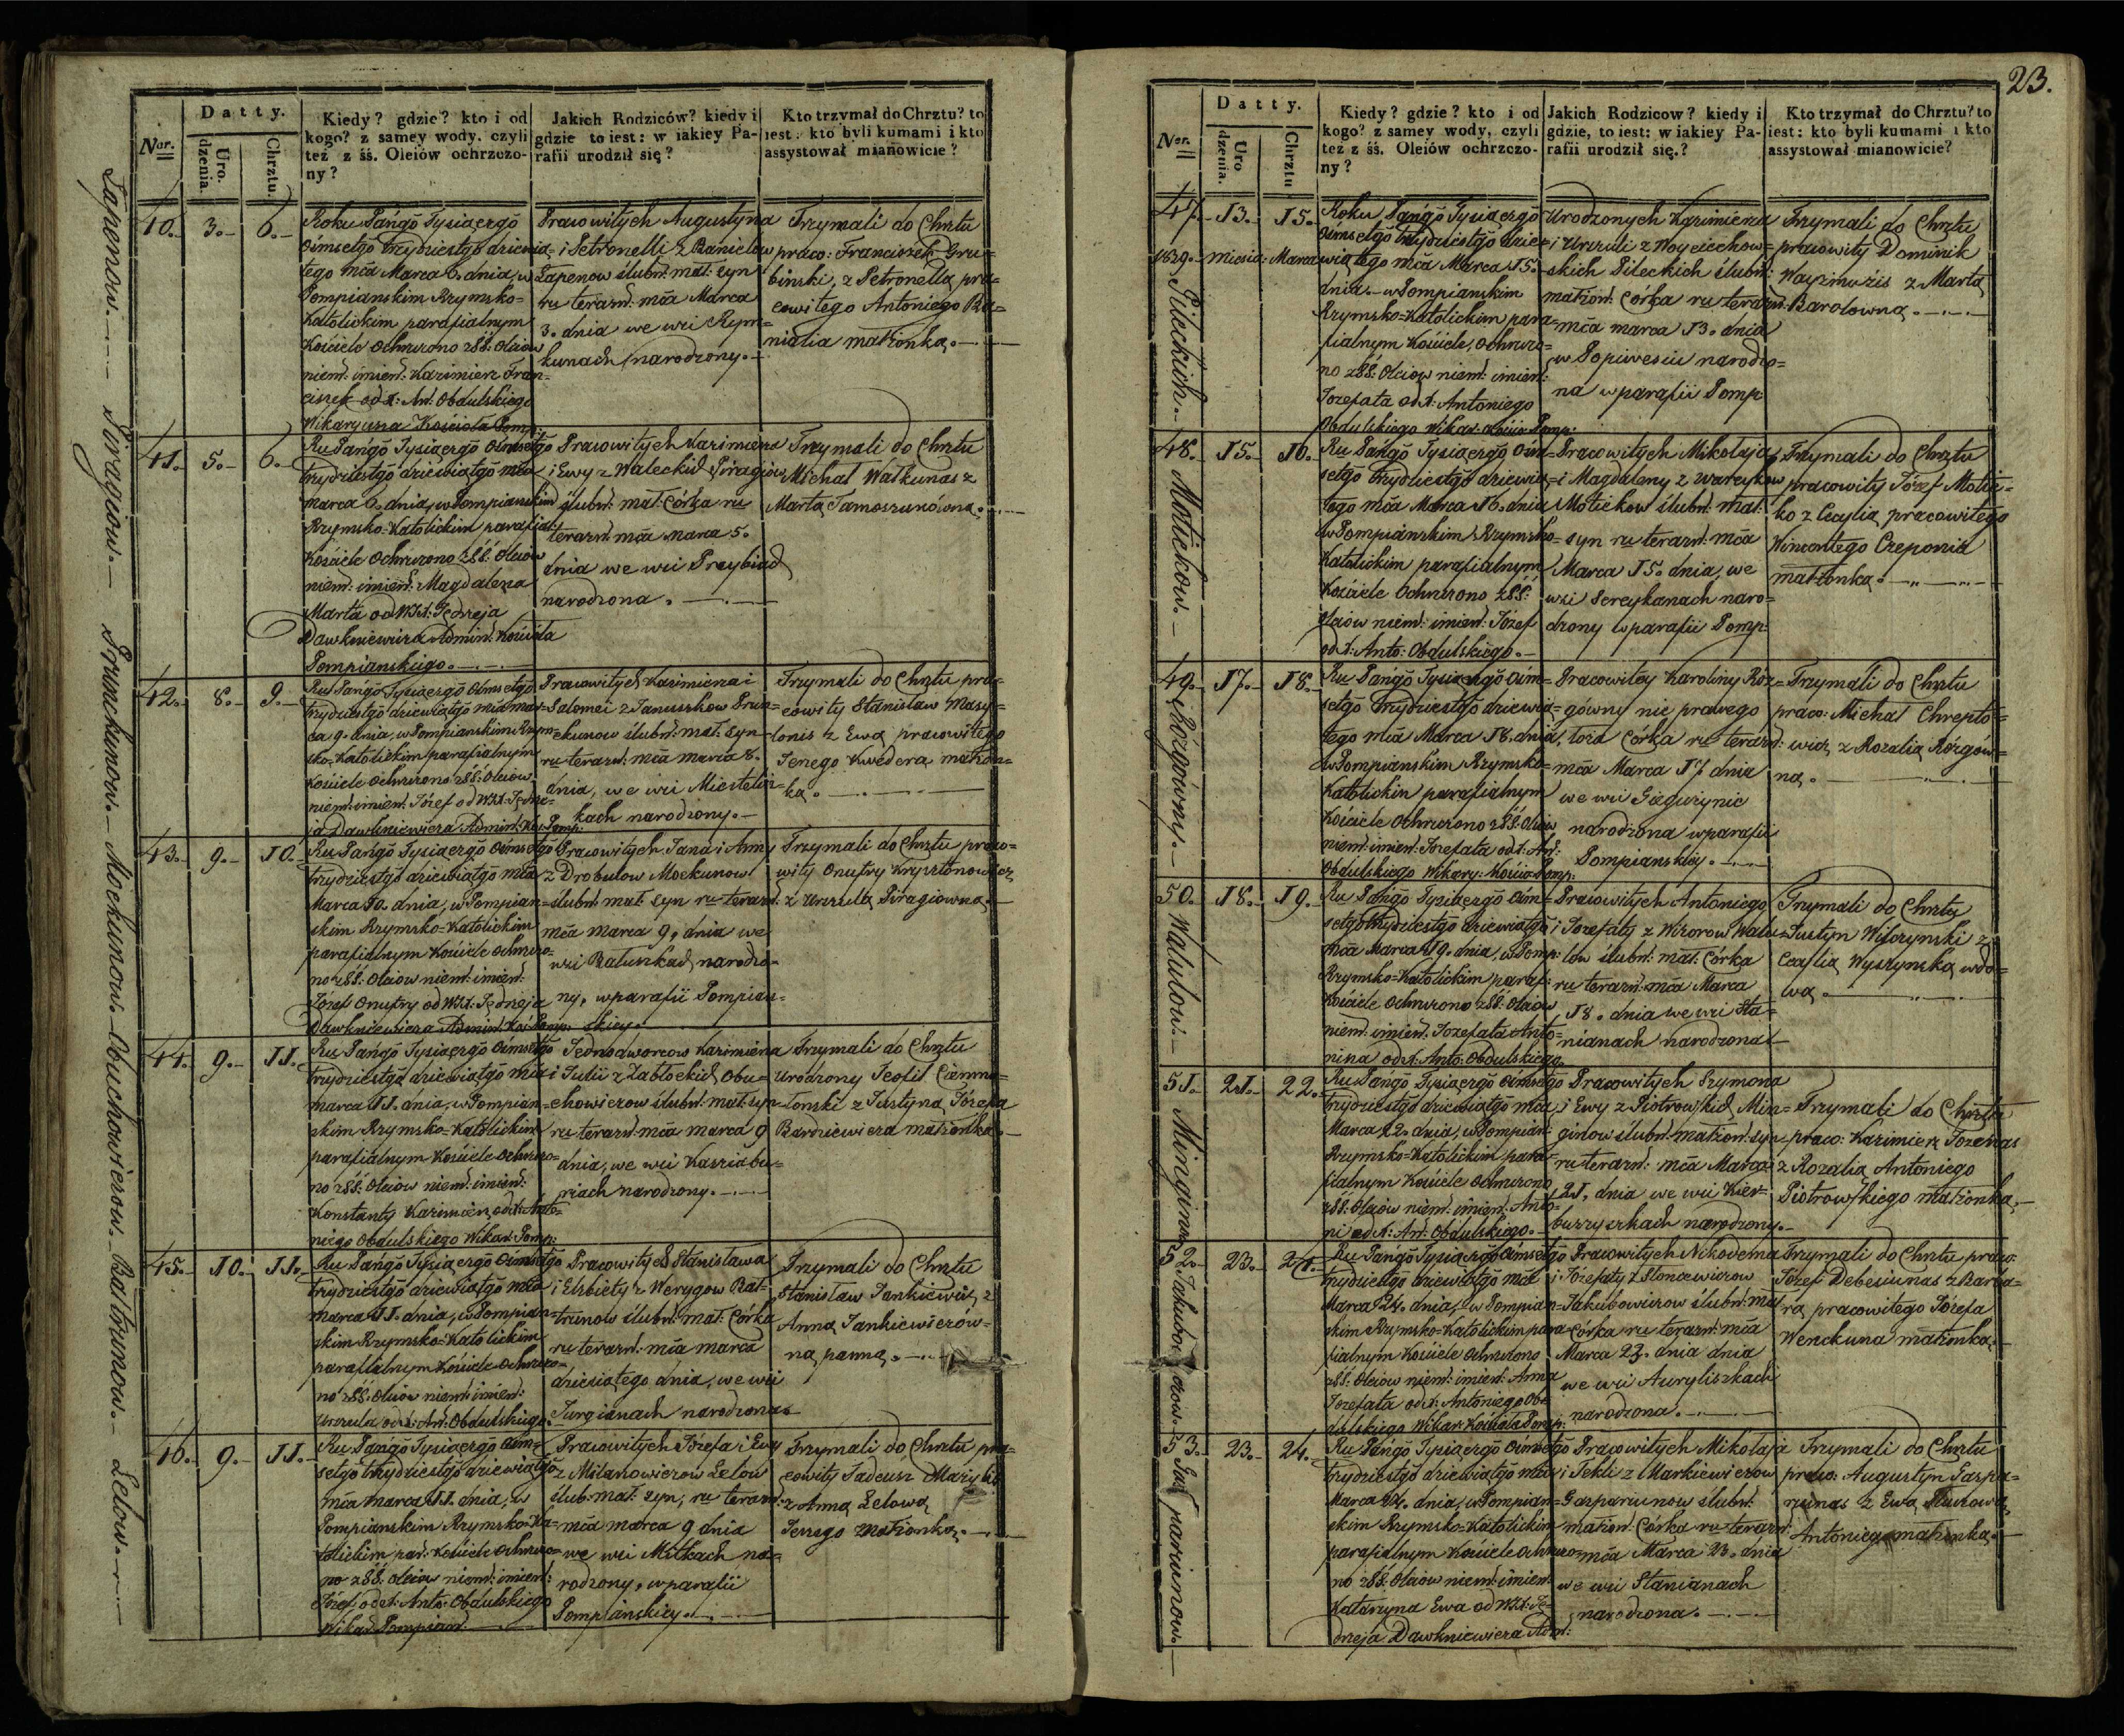 Nar.
Datty.
Uro.
dzenia.
Chrztu.
Kiedy? gdzie? kto i od
kogo? z samey wody, czyli
też z śś. Oleiów ochrzczo-
ny?
Jakich Rodziców? kiedy i
gdzie to iest: w iakiey Pa-
rafii urodził się?
Kto trzymał do Chrztu? to
iest: kto byli kumami i kto
assystował mianowicie?
40.
3.
6.
Roku Pańgo Tysiącgo
Ośmsetgo trzydziestgo dziewią
tego mca Marca 6. dnia, w
Pompianskim Rzymsko=
Katolickim parafialnym
Kościele Ochrzczono z SS: Oleiow
niem: imien: Kazimierz Fran=
ciszek od X: An: Obdulskiego
Wikaryusza Kościoła Pomp:
Pracowitych Augustyna
i Petronelli z Danielow
Łapenow ślubn: mał: syn
ru terazn: mca Marca
3. dnia we wsi Rym=
kunach narodzony.
Trzymali do Chrztu
praco: Franciszek Gru=
binski, z Petronellą pra=
cowitego Antoniego
małżonką.
41.
5.
6.
Ru Pańgo Tysiącgo Ośmsetgo
trzydziestgo dziewiątgo mca
marca 6. dnia, w Pompianskim
Rzymsko-Katolickim parafial:
Kościele Ochrzczono z SS: Oleiow
niem: imien: Magdalena
Marta od WXX: Jędrzeja
Dawkniewicza Admin: Kościoła
Pompianskiego.
Pracowitych Kazimierza
i Ewy z Waleckich Piragiow
ślubn: mał: Córka ru
terazn: mca marca 5.
dnia we wsi
narodzona.
Trzymali do Chrztu
Michał Watkunas z
Martą Tamoszunówną.
42.
8.
9.
Ru Pańgo Tysiącgo Ośmsetgo
trzydziestgo dziewiątgo mca mar=
ca 9. dnia, w Pompianskim Rzym=
sko-Katolickim parafialnym
Kościele Ochrzczono z SS: Oleiow
niem: imien: Józef od WXX: Jędrze=
ja Dawkniewicza Admin: Koś: Pomp:
Pracowitych Kazimierza i
Salomei z Januszkow Prun=
ckunow ślubn: mał: syn
ru terazn: mca marca 8.
dnia, we wsi Miestelisz=
kach narodzony.
Trzymali do Chrztu pra=
cowity Stanisław Masy=
lonis z Ewą pracowitego
Jerzego Kwedera małżon=
ką.
43.
9.
10.
Ru Pańgo Tysiącgo Ośmsetgo
trzydziestgo dziewiątgo mca
Marca 10. dnia, w Pompian=
skim Rzymsko-Katolickim
parafialnym Kościele Ochrzczo=
no z SS: Oleiow niem: imien:
Józef Onufry od WXX: Jędrzeja
Dawkniewicza Admin: Koś: Pomp:
Pracowitych Jana i Anny
z Drobulow Mockunow
ślubn: mał: syn ru terazn:
mca marca 9. dnia we
wsi narodzo=
ny, w parafii Pompian=
skiey.
Trzymali do Chrztu praco=
wity Onufry Krysztonowicz
z Urszulą Piragiowną.
44.
9.
11.
Ru Pańgo Tysiącgo Ośmsetgo
trzydziestgo dziewiątgo mca
marca 11. dnia, w Pompian=
skim Rzymsko-Katolickim
parafialnym Kościele Ochrzczo=
no z SS: Oleiow niem: imien:
Konstanty Kazimierz od X: Anto=
niego Obdulskiego Wikar: Pomp:
Jednodworcow Kazimierza
i Julii z Zabłockich Obu=
chowiczow ślubn: mał: syn
ru terazn: mca marca 9
dnia, we wsi Kaszuba=
riach narodzony.
Trzymali do Chrztu
Urodzony Teofil Ciemno=
łonski z Justyną Józefa
Bardziewicza małżonką.
45.
10.
11.
Ru Pańgo Tysiącgo Ośmsetgo
trzydziestgo dziewiątgo mca
marca 11. dnia, w Pompian=
skim Rzymsko-Katolickim
parafialnym Kościele Ochrzczo=
no z SS: Oleiow niem: imien:
Urszula od X: An: Obdulskiego
Pracowitych Stanisława
i Elżbiety z Werygow Bal=
trunow ślubn: mał: Córka
ru terazn: mca marca
dziesiątego dnia, we wsi
Jurgianach narodzona
Trzymali do Chrztu
Stanisław Jankiewicz z
Anną Jankiewiczów=
ną panną.
46.
9.
11.
Ru Pańgo Tysiącgo Ośm=
setgo trzydziestgo dziewiątgo
mca marca 11. dnia, w
Pompianskim Rzymsko-Ka=
tolickim par: Kościele Ochrzczo=
no z SS: Oleiow niem: imien:
Józef od X: Anto: Obdulskiego
Wikar: Pompian:
Pracowitych Józefa i Ewy
z Milanowiczow Lelow
ślub: mał: syn, ru terazn:
mca marca 9 dnia
we wsi Mitkach na=
rodzony, w parafii
Pompianskiey.
Trzymali do Chrztu pra=
cowity Tadeusz
z Anną Lelową
Jerzego małżonką.
Łapenow. Piragiow. Prunckunow. Mockunow. Obuchowiczow. Baltrunow. Lelow.
23.
Nar.
Datty.
Uro
dzenia.
Chrztu
Kiedy? gdzie? kto i od
kogo? z samey wody, czyli
też z śś. Oleiów ochrzczo-
ny?
Jakich Rodzicow? kiedy i
gdzie, to iest: w iakiey Pa-
rafii urodził się.?
Kto trzymał do Chrztu? to
iest: kto byli kumami i kto
assystował mianowicie?
47.
13.
15.
1839. miesia: Marca
Roku Pańgo Tysiącgo
Ośmsetgo trzydziestgo dzie=
wiątego mca Marca 15.
dnia w Pompianskim
Rzymsko=Katolickim para=
fialnym Kościele, Ochrzczo=
no z SS: Oleiow niem: imien:
Jozefata od X: Antoniego
Obdulskiego Wikar: Kościo: Pomp:
Urodzonych Kazimierza
i Urszuli z Woyciechow=
skich Pileckich ślubn:
małżon: Córka ru terazn:
mca marca 13. dnia
w Popiwesiu narodzo=
na w parafii Pomp:
Trzymali do Chrztu
pracowity Dominik
z Martą
Barolowną.
48.
15.
16.
Ru Pańgo Tysiącgo Ośm=
setgo trzydziestgo dziewią=
tego mca Marca 16. dnia
w Pompianskim Rzymsko=
Katolickim parafialnym
Kościele Ochrzczono z SS:
Oleiow niem: imien: Józef
od X: Anto: Obdulskiego.
Pracowitych Mikołaja
i Magdaleny z Warcykow
Motiekow ślubn: mał:
syn ru terazn: mca
Marca 15. dnia, we
wsi Sereykanach naro=
dzony w parafii Pomp:
Trzymali do Chrztu
pracowity Józef Motie=
ko z Cecylią pracowitego
Wincentego Czeponia
małżonką.
49.
17.
18.
Ru Pańgo Tysiącgo Ośm=
setgo trzydziestgo dziewią=
tego mca Marca 18. dnia
w Pompianskim Rzymsko=
Katolickim parafialnym
Kościele Ochrzczono z SS: Oleiow
niem: imien: Jozefata od X: An:
Obdulskiego Wikary: Kościo: Pomp:
Pracowitey Karoliny Róz=
gówny nie prawego
łoża Córka ru terazn:
mca Marca 17 dnia
we wsi Gieguzynie
narodzona w parafii
Pompianskiey.
Trzymali do Chrztu
praco: Michał Chrepto=
wicz z Rozalią Rózgów=
ną.
50.
18.
19.
Ru Pańgo Tysiącgo Ośm=
setgo trzydziestgo dziewiątgo
mca Marca 19. dnia, w Pomp:
Rzymsko=Katolickim paraf:
Kościele Ochrzczono z SS: Oleiow
niem: imien: Jozefata Anto=
nina od X: Anto: Obdulskiego
Pracowitych Antoniego
i Jozefaty z Wizorow Walu=
low ślubn: mał: Córka
ru terazn: mca Marca
18. dnia we wsi Sta=
nianach narodzona
Trzymali do Chrztu
Justyn z
Cecylią Wyszynską wdo=
wą.
51.
21.
22.
Ru Pańgo Tysiącgo Ośmsetgo
trzydziestgo dziewiątgo mca
Marca 22. dnia, w Pompian:
Rzymsko=Katolickim para=
fialnym Kościele Ochrzczono
z SS: Oleiow niem: imien: Anto=
ni od X: An: Obdulskiego.
Pracowitych Szymona
i Ewy z Piotrowskich Min=
ginow ślubn: małżon: syn
ru terazn: mca Marca
21. dnia we wsi Kier=
buzyszkach narodzony.
Trzymali do Chrztu
praco: Kazimierz Jozenas
z Rozalią Antoniego
Piotrowskiego małżonką.
52.
23.
24.
Ru Pańgo Tysiącgo Ośmsetgo
trzydziestgo dziewiątgo mca
Marca 24. dnia, w Pompian=
skim Rzymsko=Katolickim para
fialnym Kościele Ochrzczono
z SS: Oleiow niem: imien: Anna
Jozefata od X: Antoniego Ob=
dulskiego Wikar: Kościoła Pomp:
Pracowitych Nikodema
i Józefaty z Stoncewiczow
Jakubowiczow ślubn: mał
Córka ru terazn: mca
Marca 23. dnia dnia
we wsi Auryliszkach
narodzona.
Trzymali do Chrztu praco:
Józef Debesiunas z Barba=
rą pracowitego Józefa
Wenckuna małżonką.
53.
23.
24.
Ru Pańgo Tysiącgo Ośmsetgo
trzydziestgo dziewiątgo mca
Marca 24. dnia, w Pompian=
skim Rzymsko=Katolickim
parafialnym Kościele Ochrzczo=
no z SS: Oleiow niem: imien:
Katarzyna Ewa od WXX: Ję=
drzeja Dawkniewicza Adm:
Pracowitych Mikołaja
i Tekli z Markiewiczow
Gasparunow ślubn:
małżon: Córka ru terazn:
mca Marca 23. dnia
we wsi Stanianach
narodzona.
Trzymali do Chrztu
praco: Augustyn Gaspa=
runas z Ewą
Antoniego małżonką.
Pileckich. Motiekow. Rózgówny. Walulow. Minginow Jakubowiczow. Gasparunow.